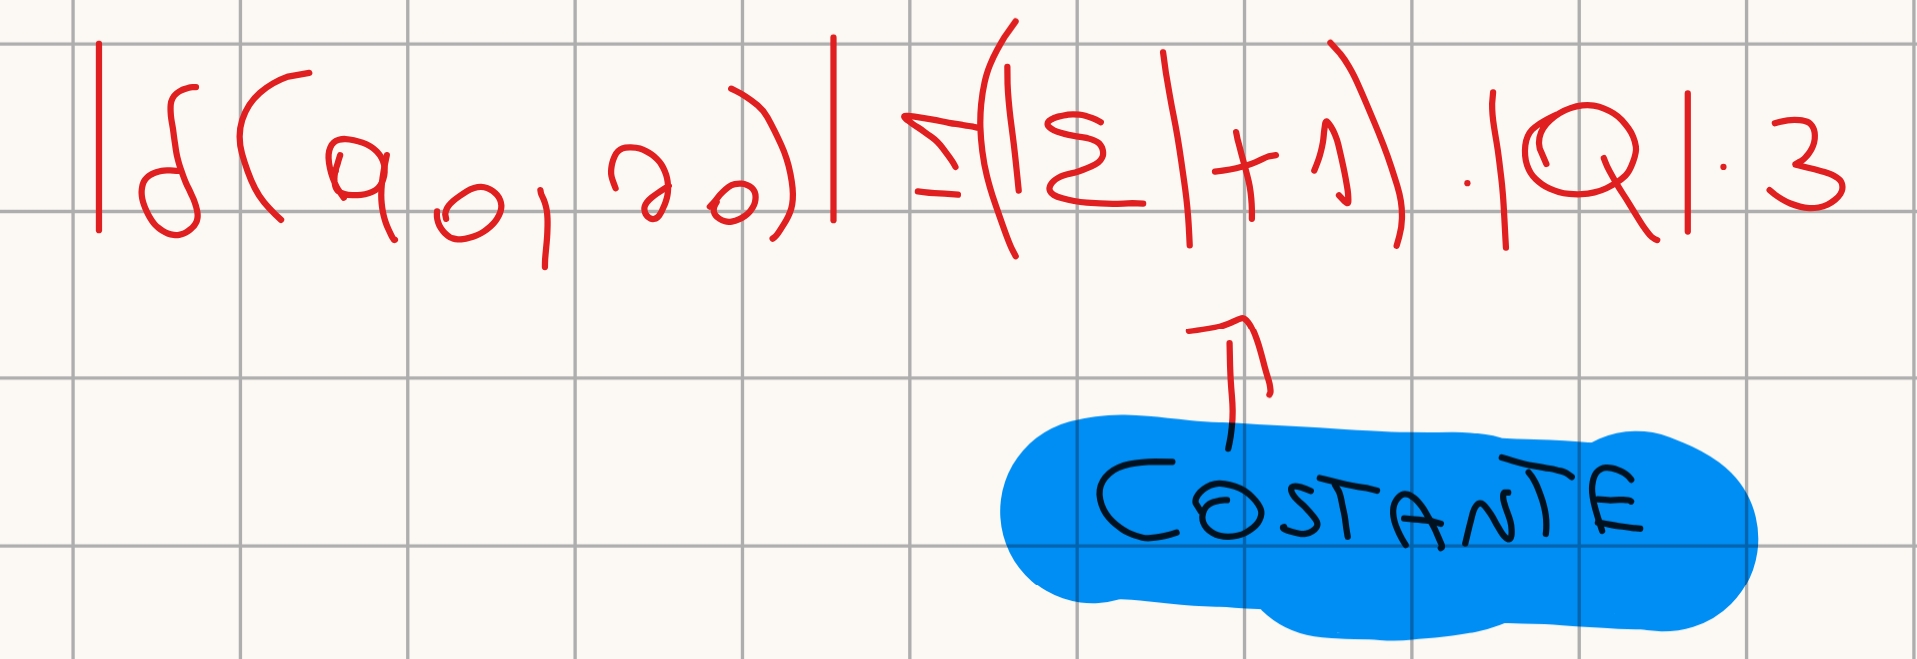 |δ(q₀, a₀)| ≤ (|Σ| + 1) · |Q| · 3
COSTANTE